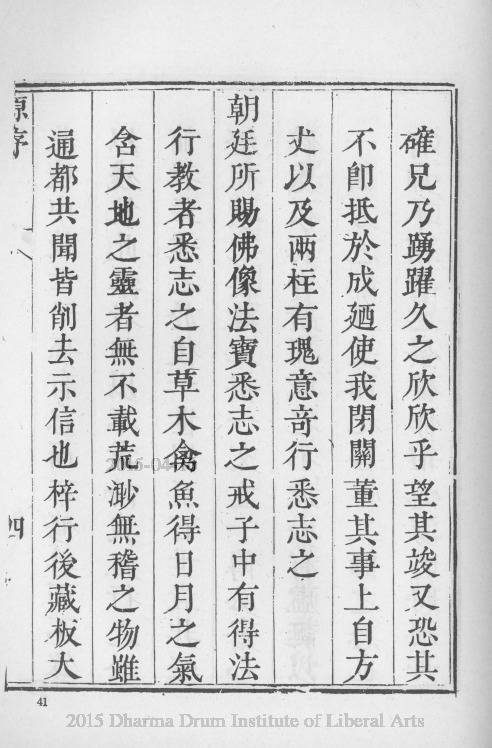 確兄乃踴躍久之欣欣乎望其竣又恐其
不卽抵於成廼使我閉關董其事上自方
丈以及兩柱有瑰意奇行悉志之
朝廷所賜佛像法寶悉志之戒子中有得法
行教者悉志之自草木禽魚得日月之氣
含天地之靈者無不載荒渺無稽之物雖
通都共聞皆削去示信也梓行後藏板大
原序
四
41
2015 Dharma Drum Institute of Liberal Arts